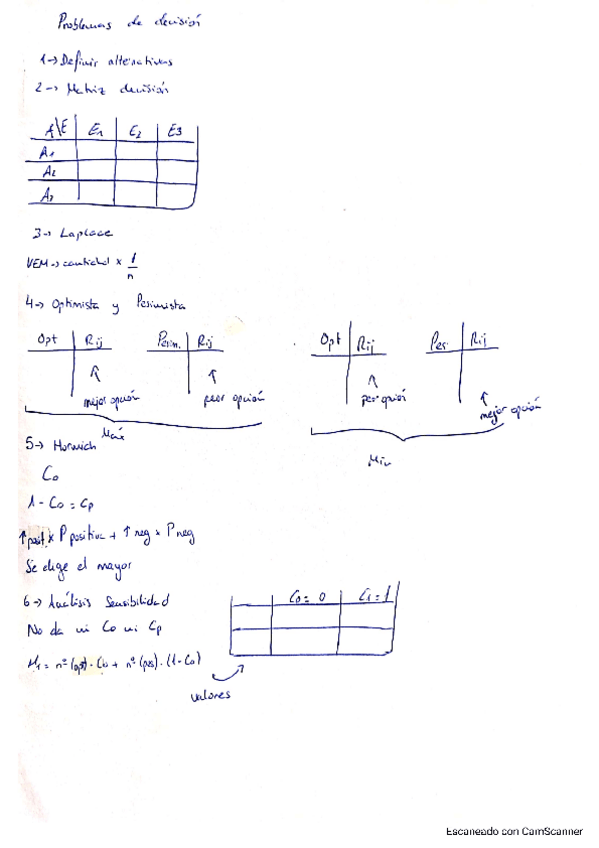 Problemas de decisión
1→ Definir alternativas
2→ Matriz decisión
A\E E1 E2 E3
A1
A2
A3
3→ Laplace
VEM → cantidad × 1/n
4→ Optimista y Pesimista
Opt Rij Pesim. Rij Opt Rij Pes. Rij
mejor opción peor opción peor opción mejor opción
Máx Min
5→ Horwich
Co
1 - Co = Cp
↑posit × P positiva + ↑ neg × P neg
Se elige el mayor
6→ Análisis Sensibilidad
Co = 0 C1 = 1
No da ni Co ni Cp
M1 = nº (opt) · Co + nº (pes) · (1 - Co)
valores
Escaneado con CamScanner